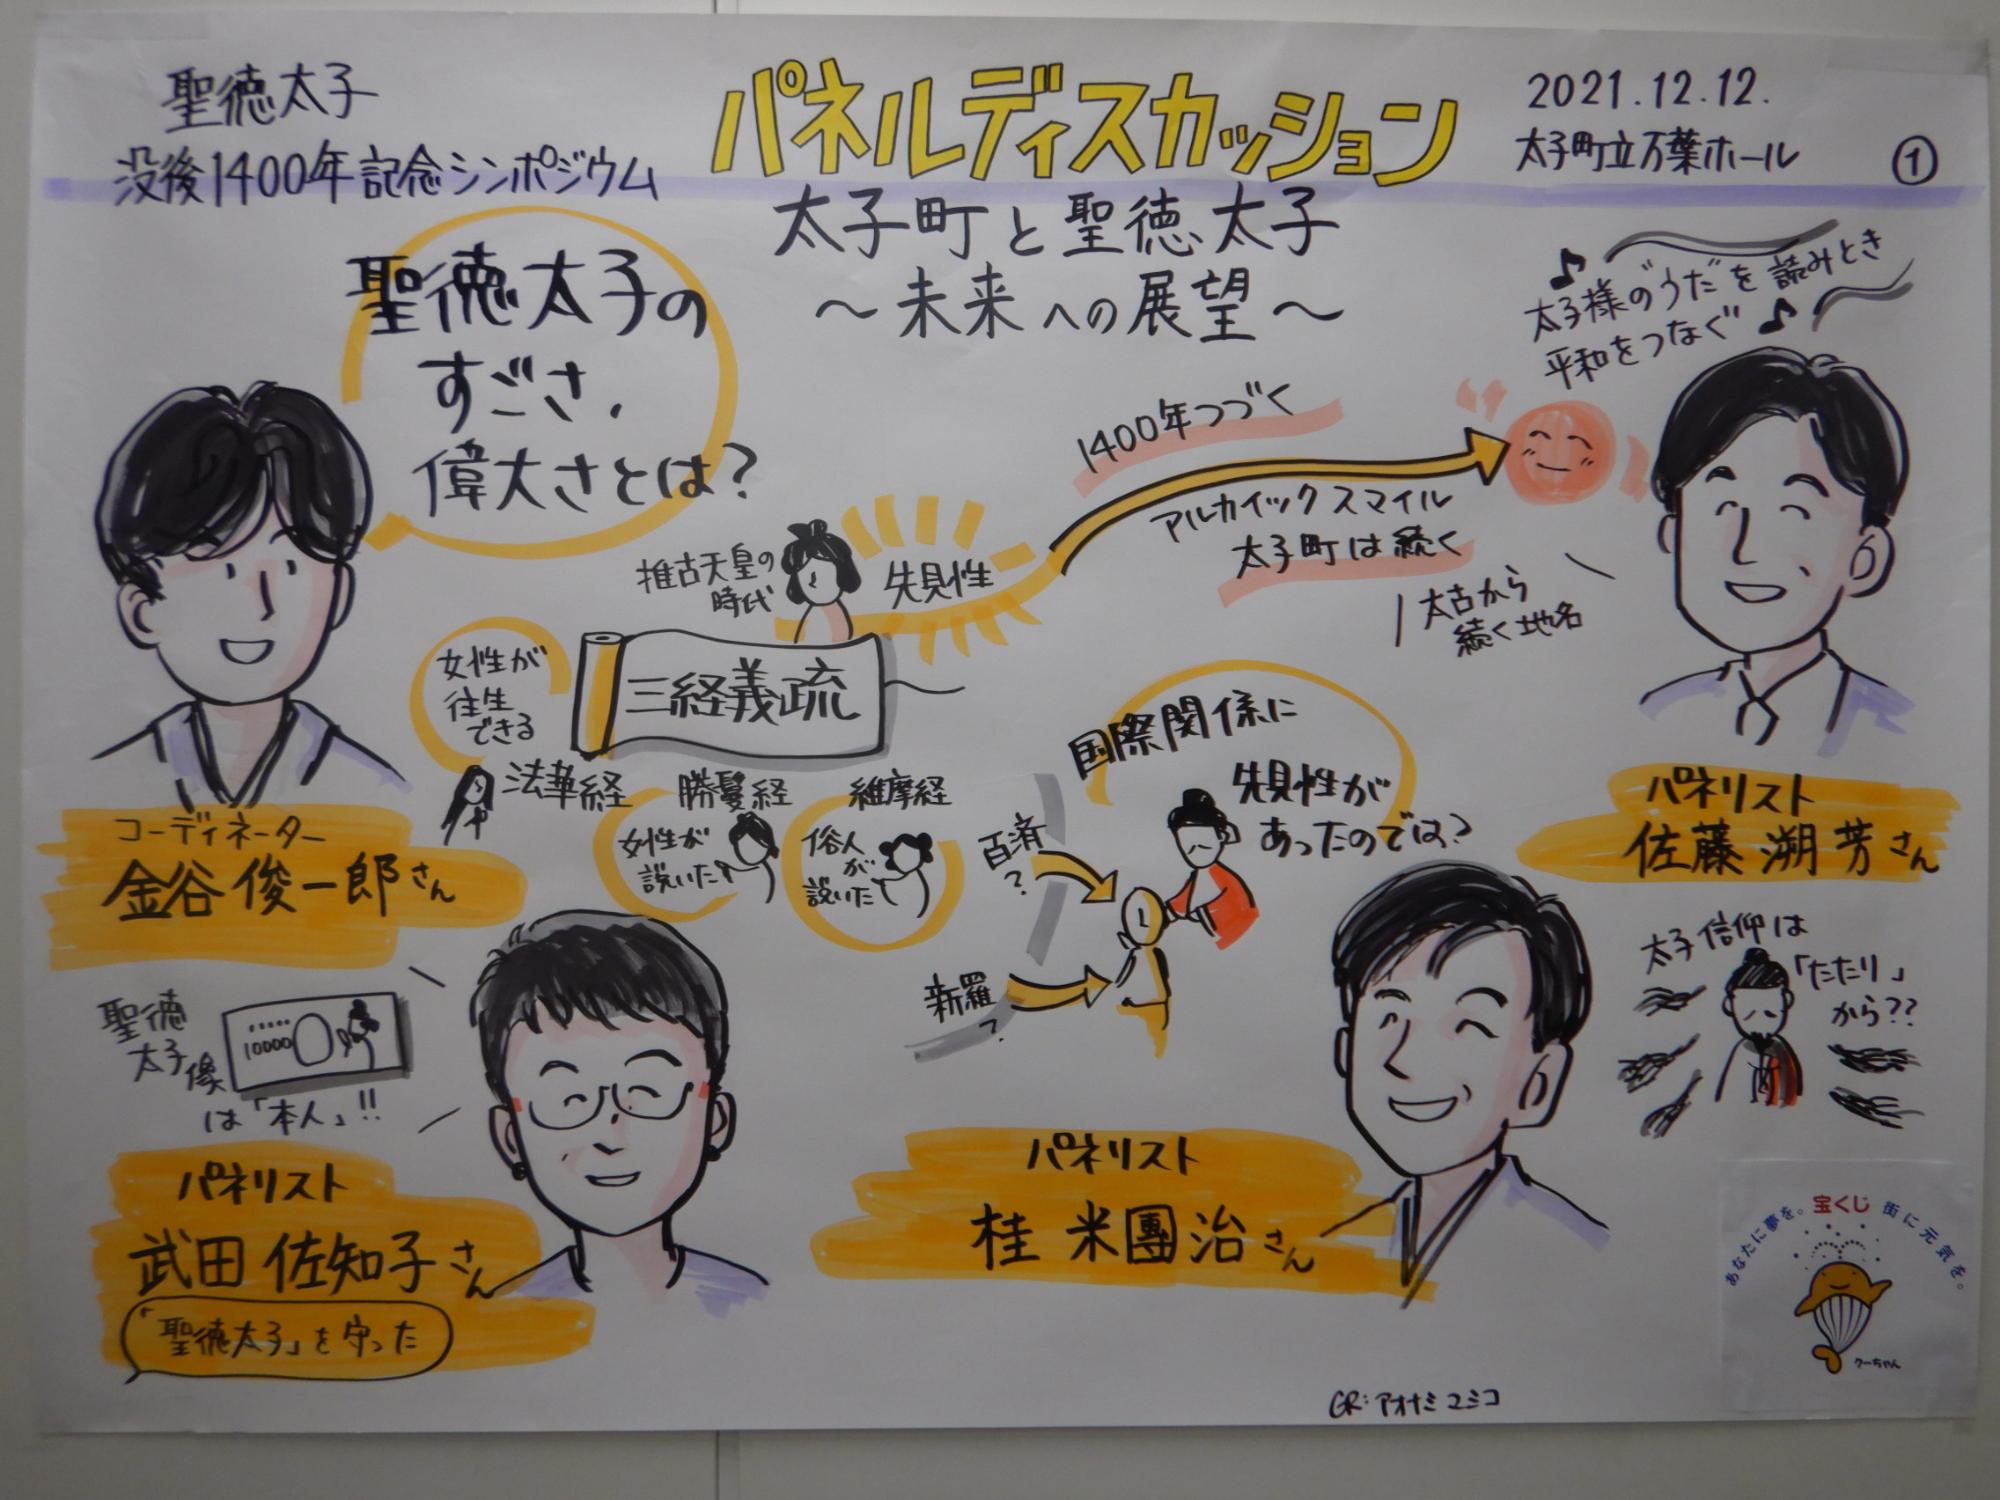 聖徳太子
没後1400年記念シンポジウム
パネルディスカッション
太子町と聖徳太子
～未来への展望～
2021.12.12.
太子町立万葉ホール
①
聖徳太子の
すごさ、
偉大さとは?
♪太子様の"うた"を読みとき
平和をつなぐ♪
1400年つづく
アルカイックスマイル
太子町は続く
太古から
続く地名
推古天皇の
時代
先見性
三経義疏
女性が
往生
できる
法華経
勝鬘経
維摩経
女性が
説いた
俗人
が
説いた
国際関係に
先見性が
あったのでは?
百済
?
新羅
?
コーディネーター
金谷俊一郎さん
パネリスト
佐藤溯芳さん
太子信仰は
「たたり」
から??
聖徳
太子
像
10000
は「本人」!!
パネリスト
武田佐知子さん
「聖徳太子」を守った
パネリスト
桂米團治さん
あなたに夢を。宝くじ 街に元気を。
クーちゃん
GR:アオナミユミコ